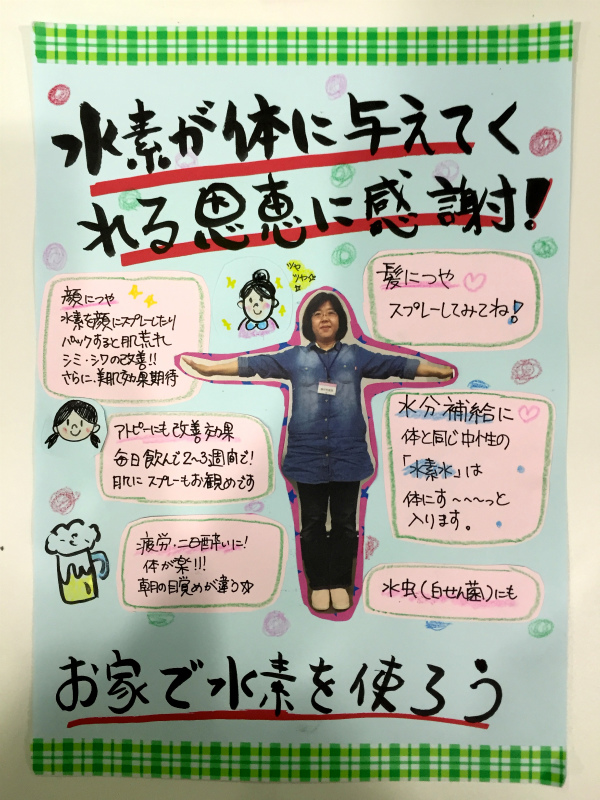 水素が体に与えてく
れる恩恵に感謝!
顔につや
水素を顔にスプレーしたり
パックすると肌荒れ
シミ・シワの改善!!
さらに、美肌効果期待
ツヤ
ツヤ
髪につや
スプレーしてみてね!
アトピーにも改善効果
毎日飲んで2〜3週間で!
肌にスプレーもお観めです
水分補給に
体と同じ中性の
「水素水」は
体にす〜〜〜っと
入ります。
疲労、二日酔いに!
体が楽!!!
朝の目覚めが違う☆
水虫(白せん菌)にも
お家で水素を使ろう